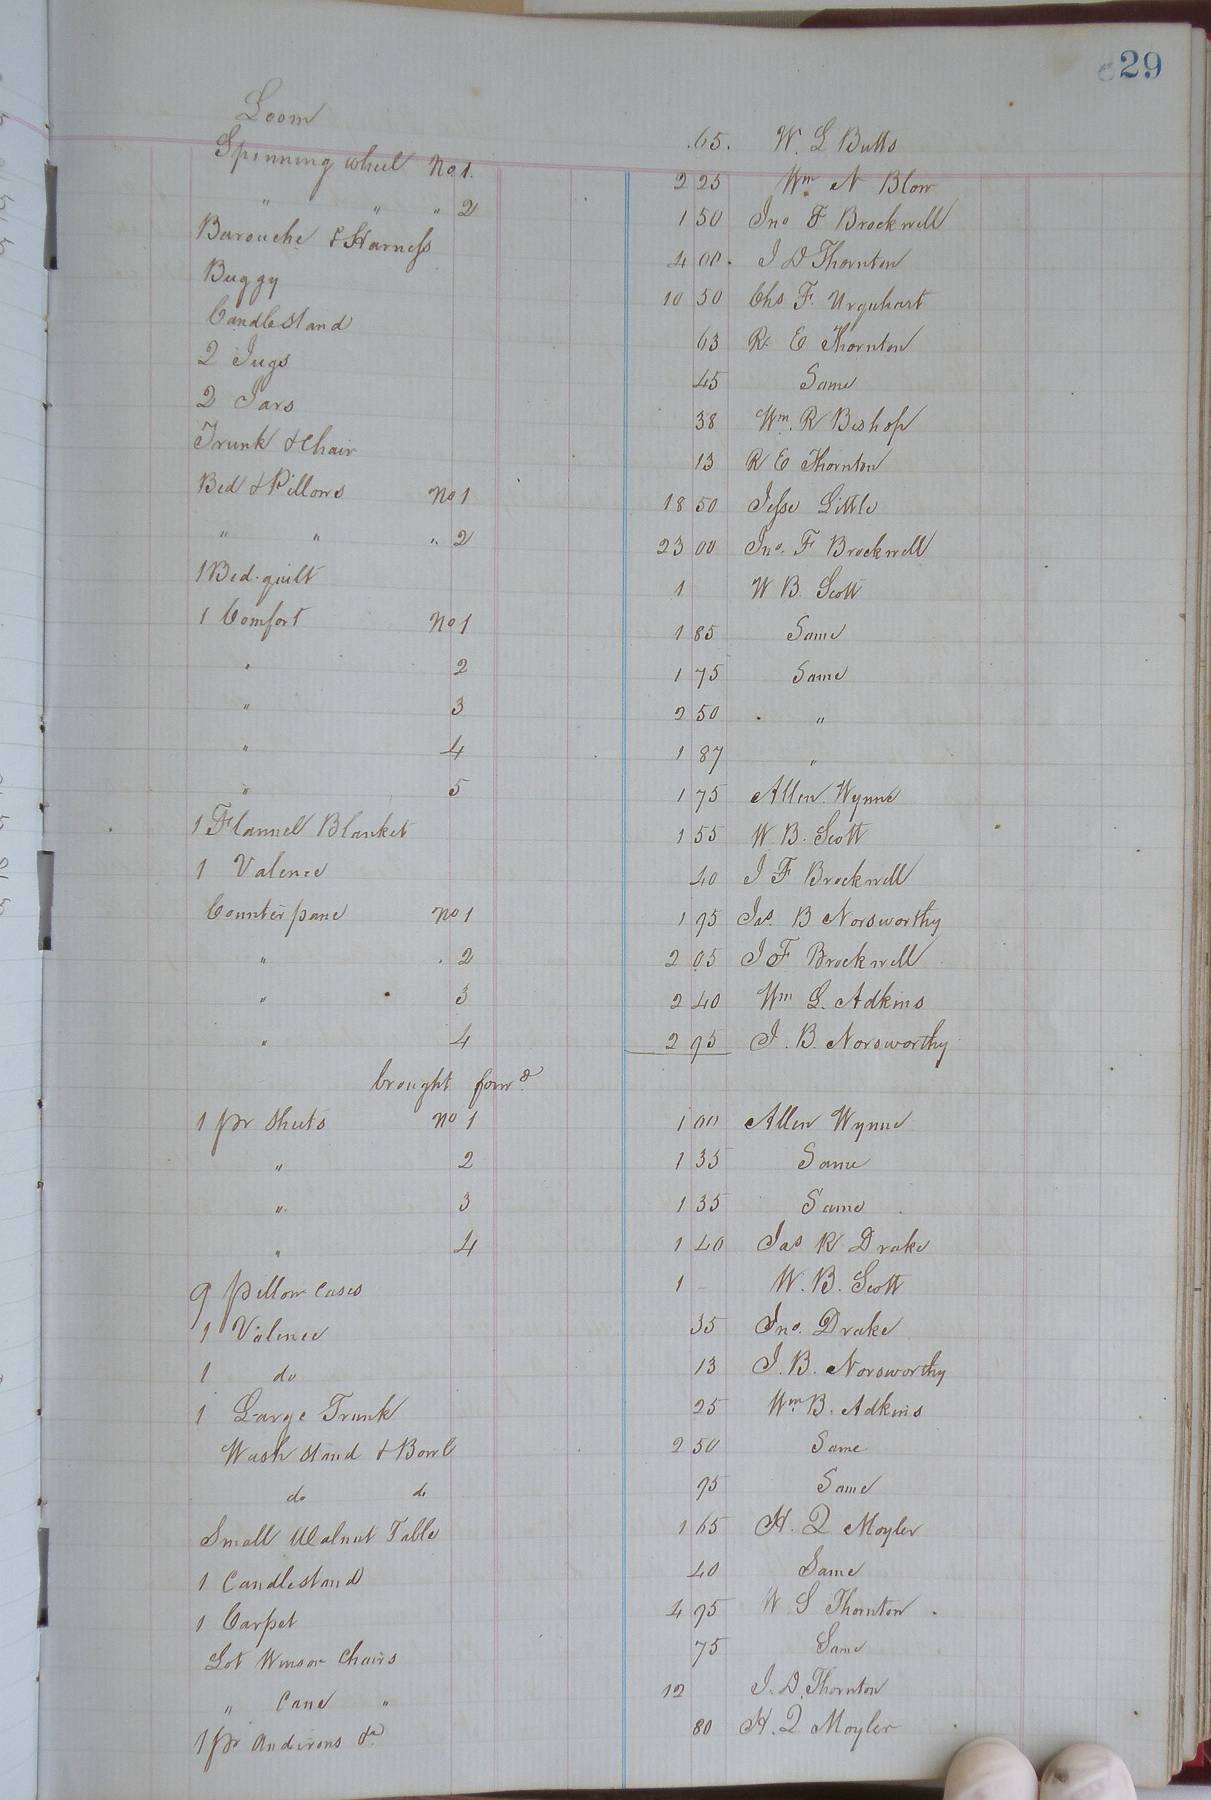 29
Loom .65. W. L Butts
Spinning wheel No 1. 2 25 Wm N Blow
" " " 2 1 50 Jno F Brockwell
Barouche & Harness 4 00. J D Thornton
Buggy 10 50 Chs F. Urquhart
Candlestand 63 R. E Thornton
2 Jugs 45 Same
2 Jars 38 Wm. R Bishop
Trunk & Chair 13 R E Thornton
Bed & Pillows No 1 18 50 Jesse Little
" " " 2 23 00 Jno. F Brockwell
1 Bed-quilt 1 W B. Scott
1 Comfort No 1 1 85 Same
" 2 1 75 Same
" 3 2 50 "
" 4 1 87 "
" 5 1 75 Allen Wynne
1 Flannel Blanket 1 55 W. B. Scott
1 Valence 40 J F Brockwell
Counterpane No 1 1 95 Jas. B Norsworthy
" . 2 2 05 J F Brockwell
" 3 2 40 Wm L. Adkins
" 4 2 95 J. B. Norsworthy
brought forwd
1 pr Sheets No 1 1 00 Allen Wynne
" 2 1 35 Same
" 3 1 35 Same
" 4 1 40 Jas R Drake
9 pillow cases 1 – W. B. Scott
1 Valence 35 Jno. Drake
1 do 13 J. B. Norsworthy
1 Large Trunk 25 Wm. B. Adkins
Wash stand & Bowl 2 50 Same
do do 95 Same
Small Walnut Table 1 65 H. Q Moyler
1 Candlestand 40 Same
1 Carpet 4 95 W S Thornton
Lot Winsor Chairs 75 Same
" Cane " 12 J. D. Thornton
1 pr Andirons &c 80 H. Q Moyler